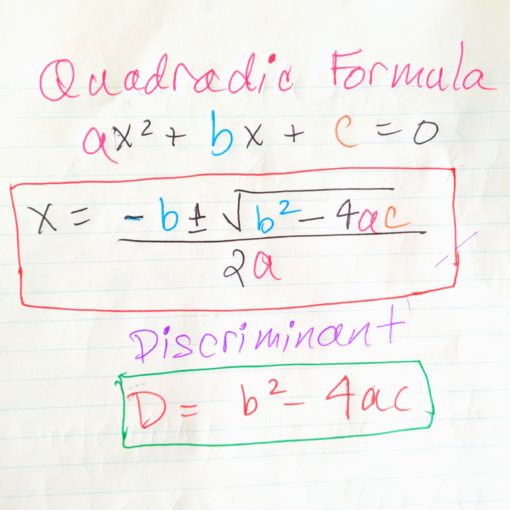 Quadradic Formula
ax² + bx + c = 0
x = -b ± √b² - 4ac / 2a
Discriminant
D = b² - 4ac